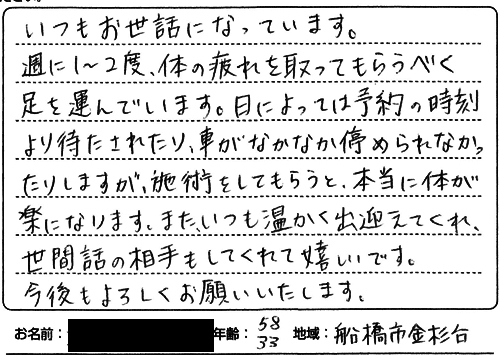 いつもお世話になっています。
週に1～2度、体の疲れを取ってもらうべく
足を運んでいます。日によっては予約の時刻
より待たされたり、車がなかなか停められなかっ
たりしますが、施術をしてもらうと、本当に体が
楽になります。また、いつも温かく出迎えてくれ、
世間話の相手もしてくれて嬉しいです。
今後もよろしくお願いいたします。
お名前： 年齢： 58 33 地域： 船橋市金杉台